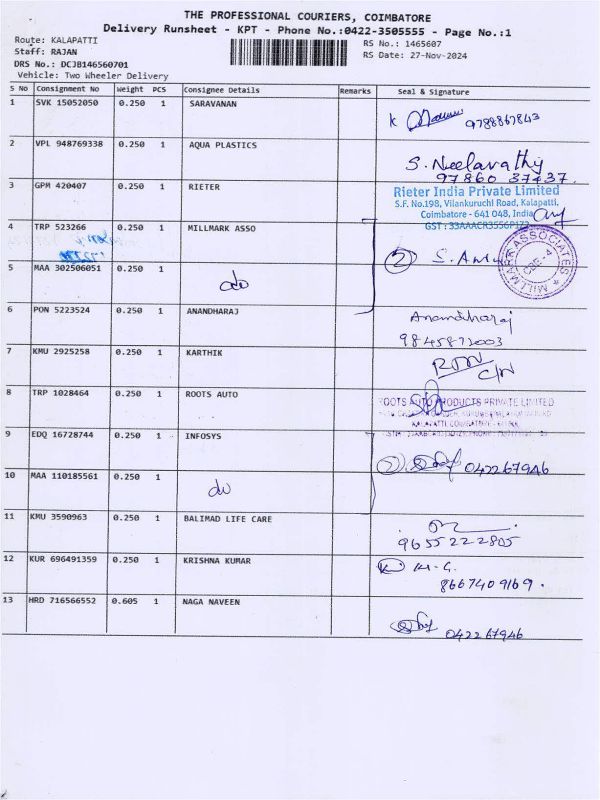 THE PROFESSIONAL COURIERS, COIMBATORE
Delivery Runsheet - KPT - Phone No.:0422-3505555 - Page No.:1
Route: KALAPATTI
RS No.: 1465607
Staff: RAJAN
RS Date: 27-Nov-2024
DRS No.: DCJB146560701
Vehicle: Two Wheeler Delivery
S No Consignment No Weight PCS Consignee Details Remarks Seal & Signature
1 SVK 15052050 0.250 1 SARAVANAN
K 9788867843
2 VPL 948769338 0.250 1 AQUA PLASTICS
S. Neelavathy
97860 37437
3 GPM 420407 0.250 1 RIETER
Rieter India Private Limited
S.F. No.198, Vilankuruchi Road, Kalapatti,
Coimbatore - 641 048, India
GST : 33AAACR3556P1Z2
4 TRP 523266 0.250 1 MILLMARK ASSO
2 S.
MILLMARK ASSOCIATES
CBE - 4
5 MAA 302506051 0.250 1 do
6 PON 5223524 0.250 1 ANANDHARAJ
Anandharaj
9845872003
7 KMU 2925258 0.250 1 KARTHIK
C/N
8 TRP 1028464 0.250 1 ROOTS AUTO
ROOTS AUTO PRODUCTS PRIVATE LIMITED
9 EDQ 16728744 0.250 1 INFOSYS
2 0422 67946
10 MAA 110185561 0.250 1 do
11 KMU 3590963 0.250 1 BALIMAD LIFE CARE
9655222805
12 KUR 696491359 0.250 1 KRISHNA KUMAR
8667409169
13 HRD 716566552 0.605 1 NAGA NAVEEN
0422 67946